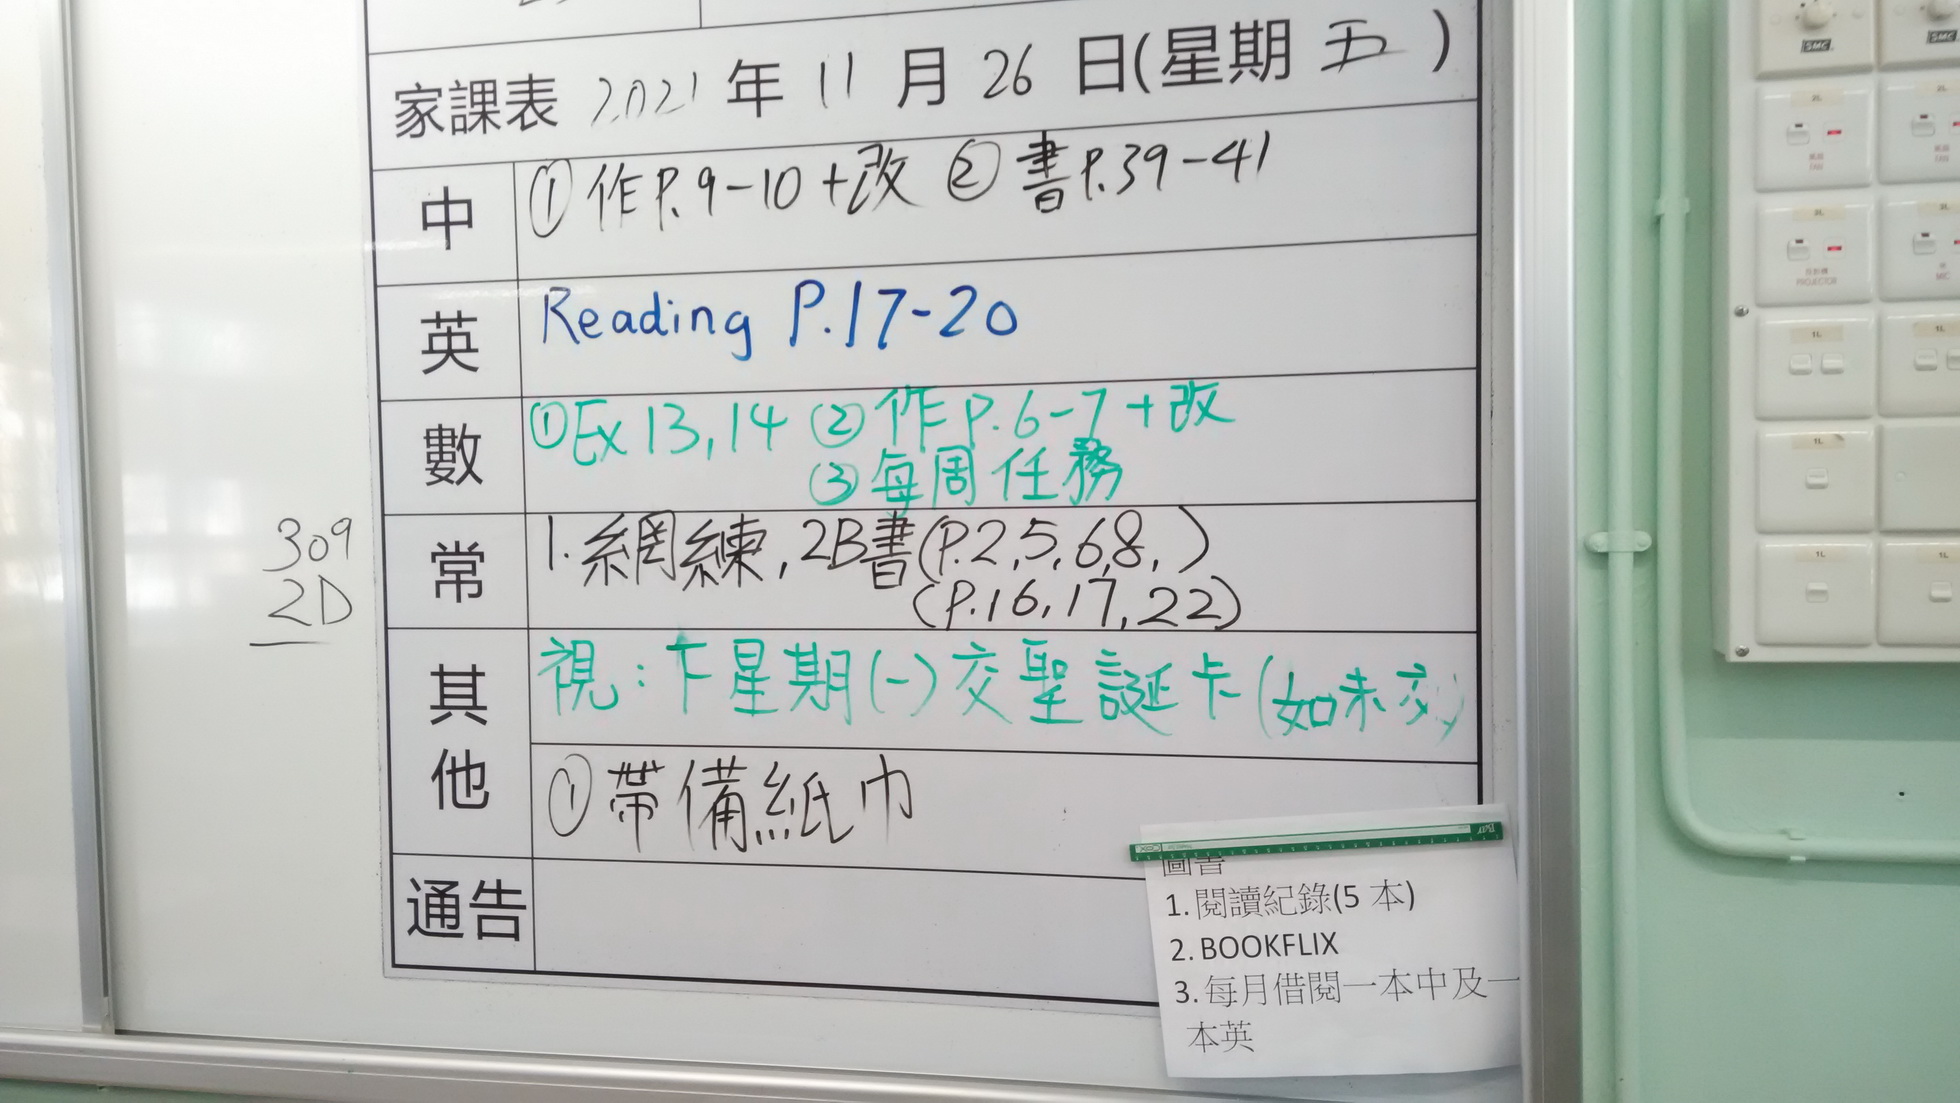 家課表 2021 年 11 月 26 日(星期 五 )
中 ① 作P.9-10+改 ② 書P.39-41
英 Reading P.17-20
數 ①Ex 13,14 ② 作P.6-7+改
③ 每周任務
常 1. 網練, 2B書(P.2,5,6,8, )
(P.16,17,22)
309
2D
其他 視:下星期(一)交聖誕卡(如未交)
① 帶備紙巾
通告
圖書
1. 閱讀紀錄(5 本)
2. BOOKFLIX
3. 每月借閱一本中及一
本英
SMC
SMC
2L
2L
FAN
2L
2L
PROJECTOR
MIC
1L
1L
1L
1L
1L